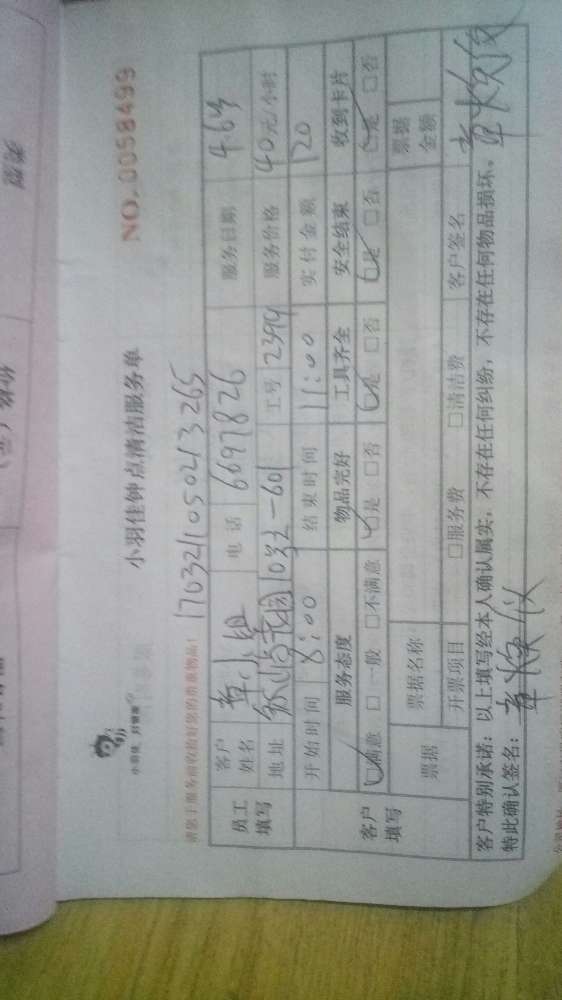 小羽佳钟点清洁服务单
NO.0058499
小羽佳，好管家
请您于服务前收拾好您的贵重物品！
170321105021 3265
员工填写
客户姓名 章小姐 电话 6697826 服务日期 4.6号
地址 103-601 工号 2394 服务价格 40元/小时
开始时间 8:00 结束时间 11:00 实付金额 120
客户填写
服务态度 物品完好 工具齐全 安全结束 收到卡片
☑满意 □一般 □不满意 ☑是 □否 ☑是 □否 ☑是 □否 ☑是 □否
票据 票据名称 票据金额
开票项目 □服务费 □清洁费 客户签名
客户特别承诺：以上填写经本人确认属实，不存在任何纠纷，不存在任何物品损坏。
特此确认签名：